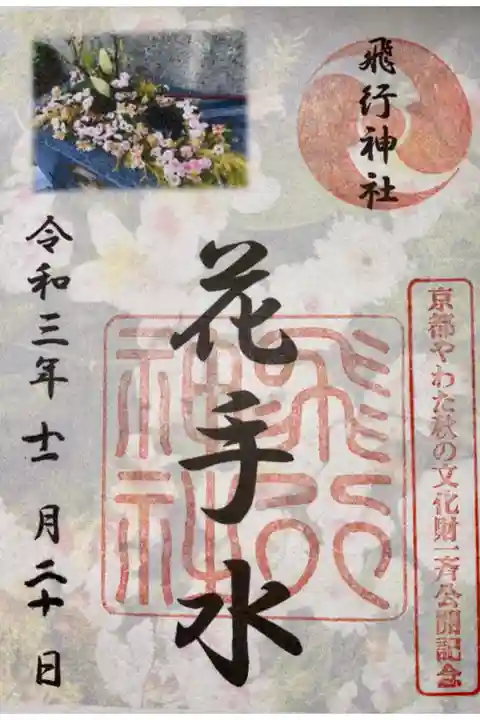 飛行神社
京都やわた秋の文化財一斉公開記念
花手水
飛行
神社
令和三年十一月二十日